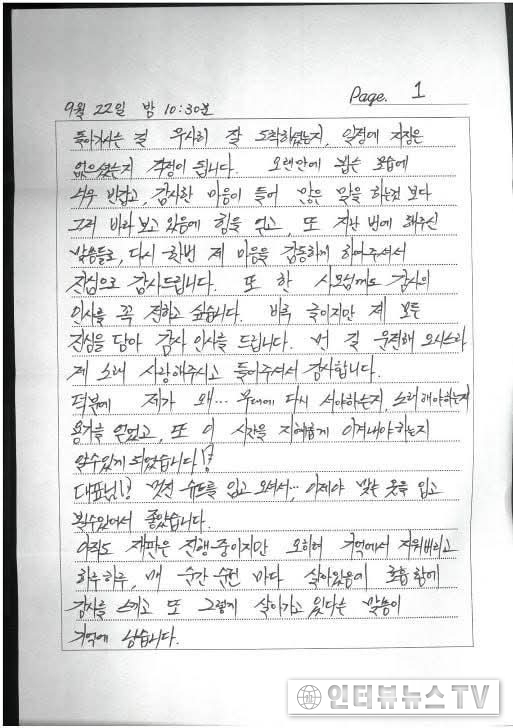 Page. 1
9월 22일 밤 10:30분
돌아가시는 길 무사히 잘 도착하셨는지, 일정에 지장은
없으셨는지 걱정이 됩니다. 오랜만에 뵙는 모습에
너무 반갑고, 감사한 마음이 들어 많은 말을 하는것 보다
그저 바라보고 있음에 힘을 얻고, 또 지난 번에 해주신
말씀들로, 다시 한번 제 마음을 감동하게 하여주셔서
진심으로 감사드립니다. 또 한 사모님께도 감사의
인사를 꼭 전하고 싶습니다. 비록 글이지만 제 모든
진심을 담아 감사 인사를 드립니다. 먼 길 운전해 오시느라
제 노래 사랑해주시고 들어주셔서 감사합니다.
덕분에 제가 왜... 무대에 다시 서야하는지, 노래해야하는지
용기를 얻었고, 또 이 시간을 지혜롭게 이겨내야하는지
알수있게 되었습니다!?
대표님!? 멋진 슈트를 입고 오셔서... 이제야 맞는 옷을 입고
볼수있어서 좋았습니다.
아직도 재판은 진행중이지만 오히려 기억에서 지워버리고
하루하루, 매 순간 순간 마다 살아있음에 호흡함에
감사를 느끼고 또 그렇게 살아가고 있다는 말씀이
기억에 남습니다.
인터뷰뉴스TV